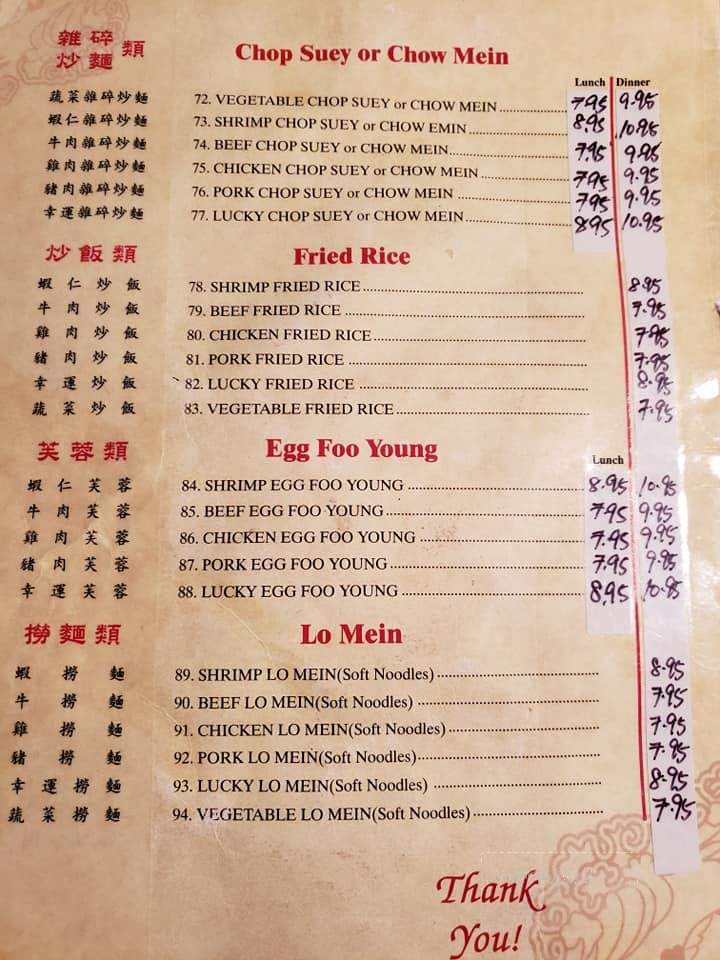 雜碎
炒麵 類
Chop Suey or Chow Mein
Lunch Dinner
蔬菜雜碎炒麵 72. VEGETABLE CHOP SUEY or CHOW MEIN 7.95 9.95
蝦仁雜碎炒麵 73. SHRIMP CHOP SUEY or CHOW EMIN 8.95 10.95
牛肉雜碎炒麵 74. BEEF CHOP SUEY or CHOW MEIN 7.95 9.95
雞肉雜碎炒麵 75. CHICKEN CHOP SUEY or CHOW MEIN 7.95 9.95
豬肉雜碎炒麵 76. PORK CHOP SUEY or CHOW MEIN 7.95 9.95
幸運雜碎炒麵 77. LUCKY CHOP SUEY or CHOW MEIN 8.95 10.95
炒飯類 Fried Rice
蝦仁炒飯 78. SHRIMP FRIED RICE 8.95
牛肉炒飯 79. BEEF FRIED RICE 7.95
雞肉炒飯 80. CHICKEN FRIED RICE 7.95
豬肉炒飯 81. PORK FRIED RICE 7.95
幸運炒飯 82. LUCKY FRIED RICE 8.95
蔬菜炒飯 83. VEGETABLE FRIED RICE 7.95
芙蓉類 Egg Foo Young
Lunch
蝦仁芙蓉 84. SHRIMP EGG FOO YOUNG 8.95 10.95
牛肉芙蓉 85. BEEF EGG FOO YOUNG 7.95 9.95
雞肉芙蓉 86. CHICKEN EGG FOO YOUNG 7.95 9.95
豬肉芙蓉 87. PORK EGG FOO YOUNG 7.95 9.95
幸運芙蓉 88. LUCKY EGG FOO YOUNG 8.95 10.95
撈麵類 Lo Mein
蝦撈麵 89. SHRIMP LO MEIN(Soft Noodles) 8.95
牛撈麵 90. BEEF LO MEIN(Soft Noodles) 7.95
雞撈麵 91. CHICKEN LO MEIN(Soft Noodles) 7.95
豬撈麵 92. PORK LO MEIN(Soft Noodles) 7.95
幸運撈麵 93. LUCKY LO MEIN(Soft Noodles) 8.95
蔬菜撈麵 94. VEGETABLE LO MEIN(Soft Noodles) 7.95
Thank
You!